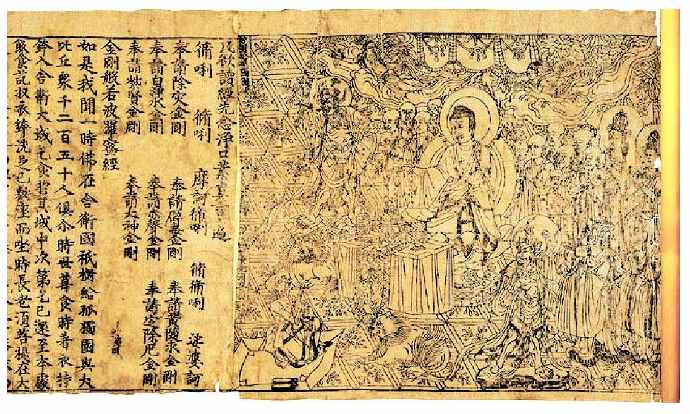 凡欲讀經先念淨口業真言遍
脩唎 脩唎 摩訶脩唎 脩脩唎 娑婆訶
奉請除災金剛 奉請辟毒金剛 奉請黃隨求金剛
奉請白淨水金剛 奉請赤聲金剛 奉請定除厄金剛
奉請紫賢金剛 奉請大神金剛
金剛般若波羅蜜經
如是我聞一時佛在舍衛國祇樹給孤獨園與大
比丘衆千二百五十人俱尒時世尊食時着衣持
鉢入舍衛大城乞食於其城中次第乞已還至本處
飯食訖收衣鉢洗足已敷座而坐時長老須菩提在大